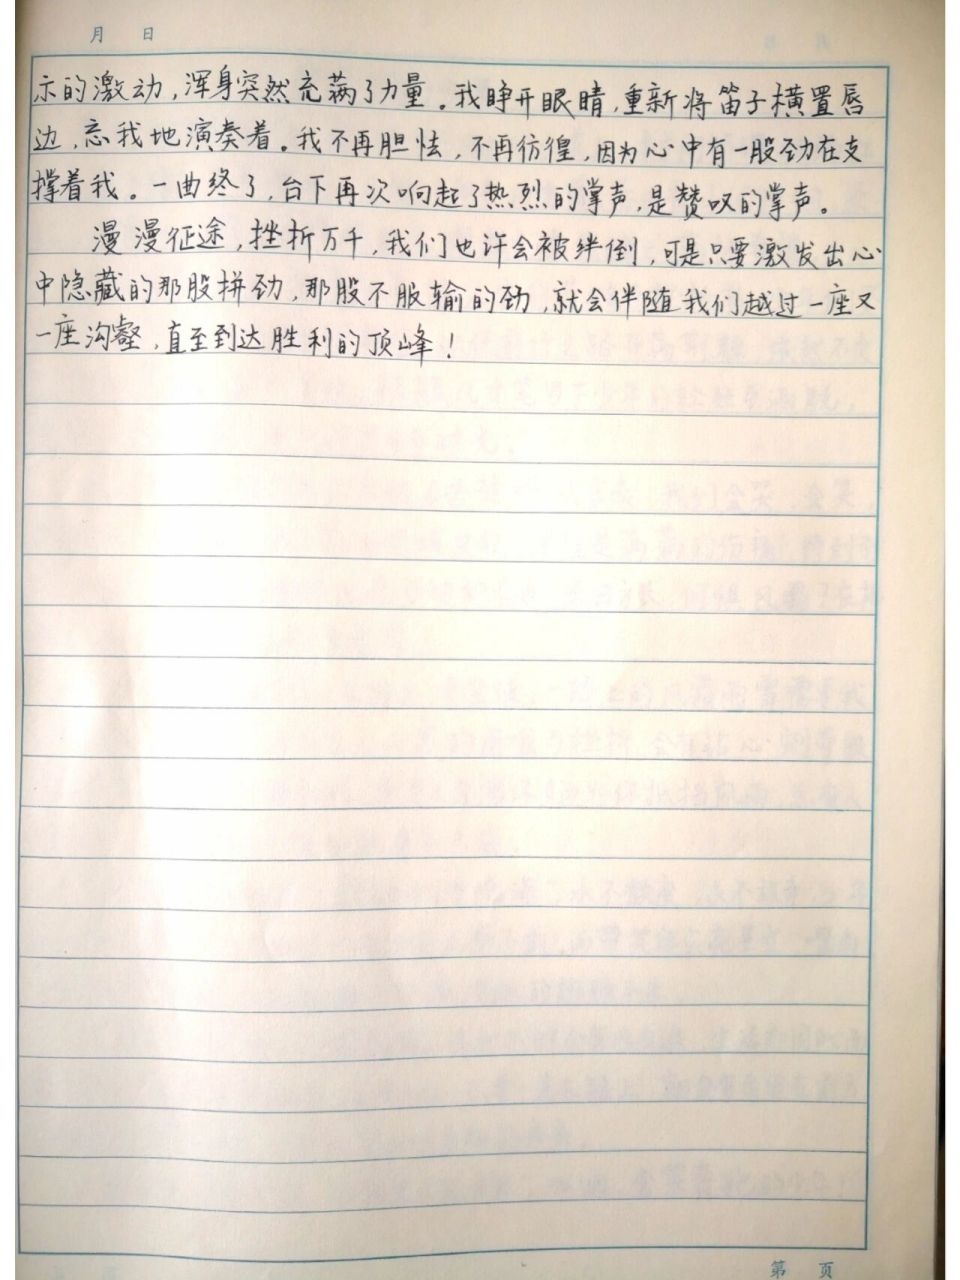 月 日
示的激动，浑身突然充满了力量。我睁开眼睛，重新将笛子横置唇
边，忘我地演奏着。我不再胆怯，不再彷徨，因为心中有一股劲在支
撑着我。一曲终了，台下再次响起了热烈的掌声，是赞叹的掌声。
漫漫征途，挫折万千，我们也许会被绊倒，可是只要激发出心
中隐藏的那股拼劲，那股不服输的劲，就会伴随我们越过一座又
一座沟壑，直至到达胜利的顶峰！
第 页